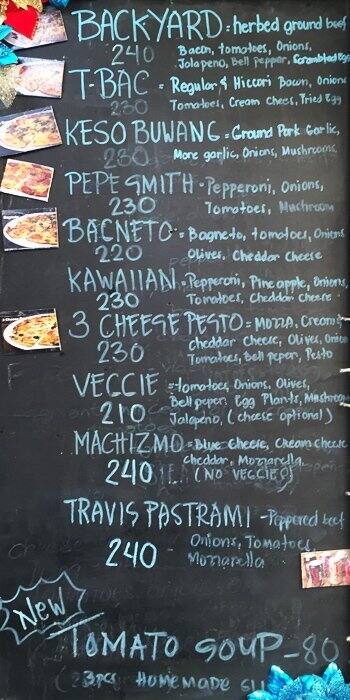 BACKYARD = herbed ground beef
240 Bacon, tomatoes, Onions,
Jalapeno, Bell Pepper, Scrambled Egg
T-BAC = Regular & Hiccori Bacon, Onions
230 Tomatoes, Cream Chees, Fried Egg
KESO BUWANG = Ground Pork Garlic,
230 More garlic, Onions, Mushrooms
PEPE SMITH - Pepperoni, Onions,
230 Tomatoes, Mushroom
BAGNETO = Bagneto, tomatoes, Onions
220 Olives, Cheddar Cheese
KAWAIIAN = Pepperoni, Pineapple, Onions,
230 Tomatoes, Cheddar Cheese
3 CHEESE PESTO = Mozza, Cream
230 cheddar Cheese, Olives, Onion
Tomatoes, Bell peper, Pesto
VEGGIE = tomatoes, Onions, Olives,
210 Bell peper, Egg Plants, Mushroom
Jalapeno, (cheese optional)
MACHIZMO = Blue Cheese, Cream cheese
240 Cheddar, Mozzarella
(NO VEGGIES)
TRAVIS PASTRAMI - Peppered beef
240 Onions, Tomatoes,
Mozzarella
New
TOMATO SOUP - 80
(3pcs HOMEMADE